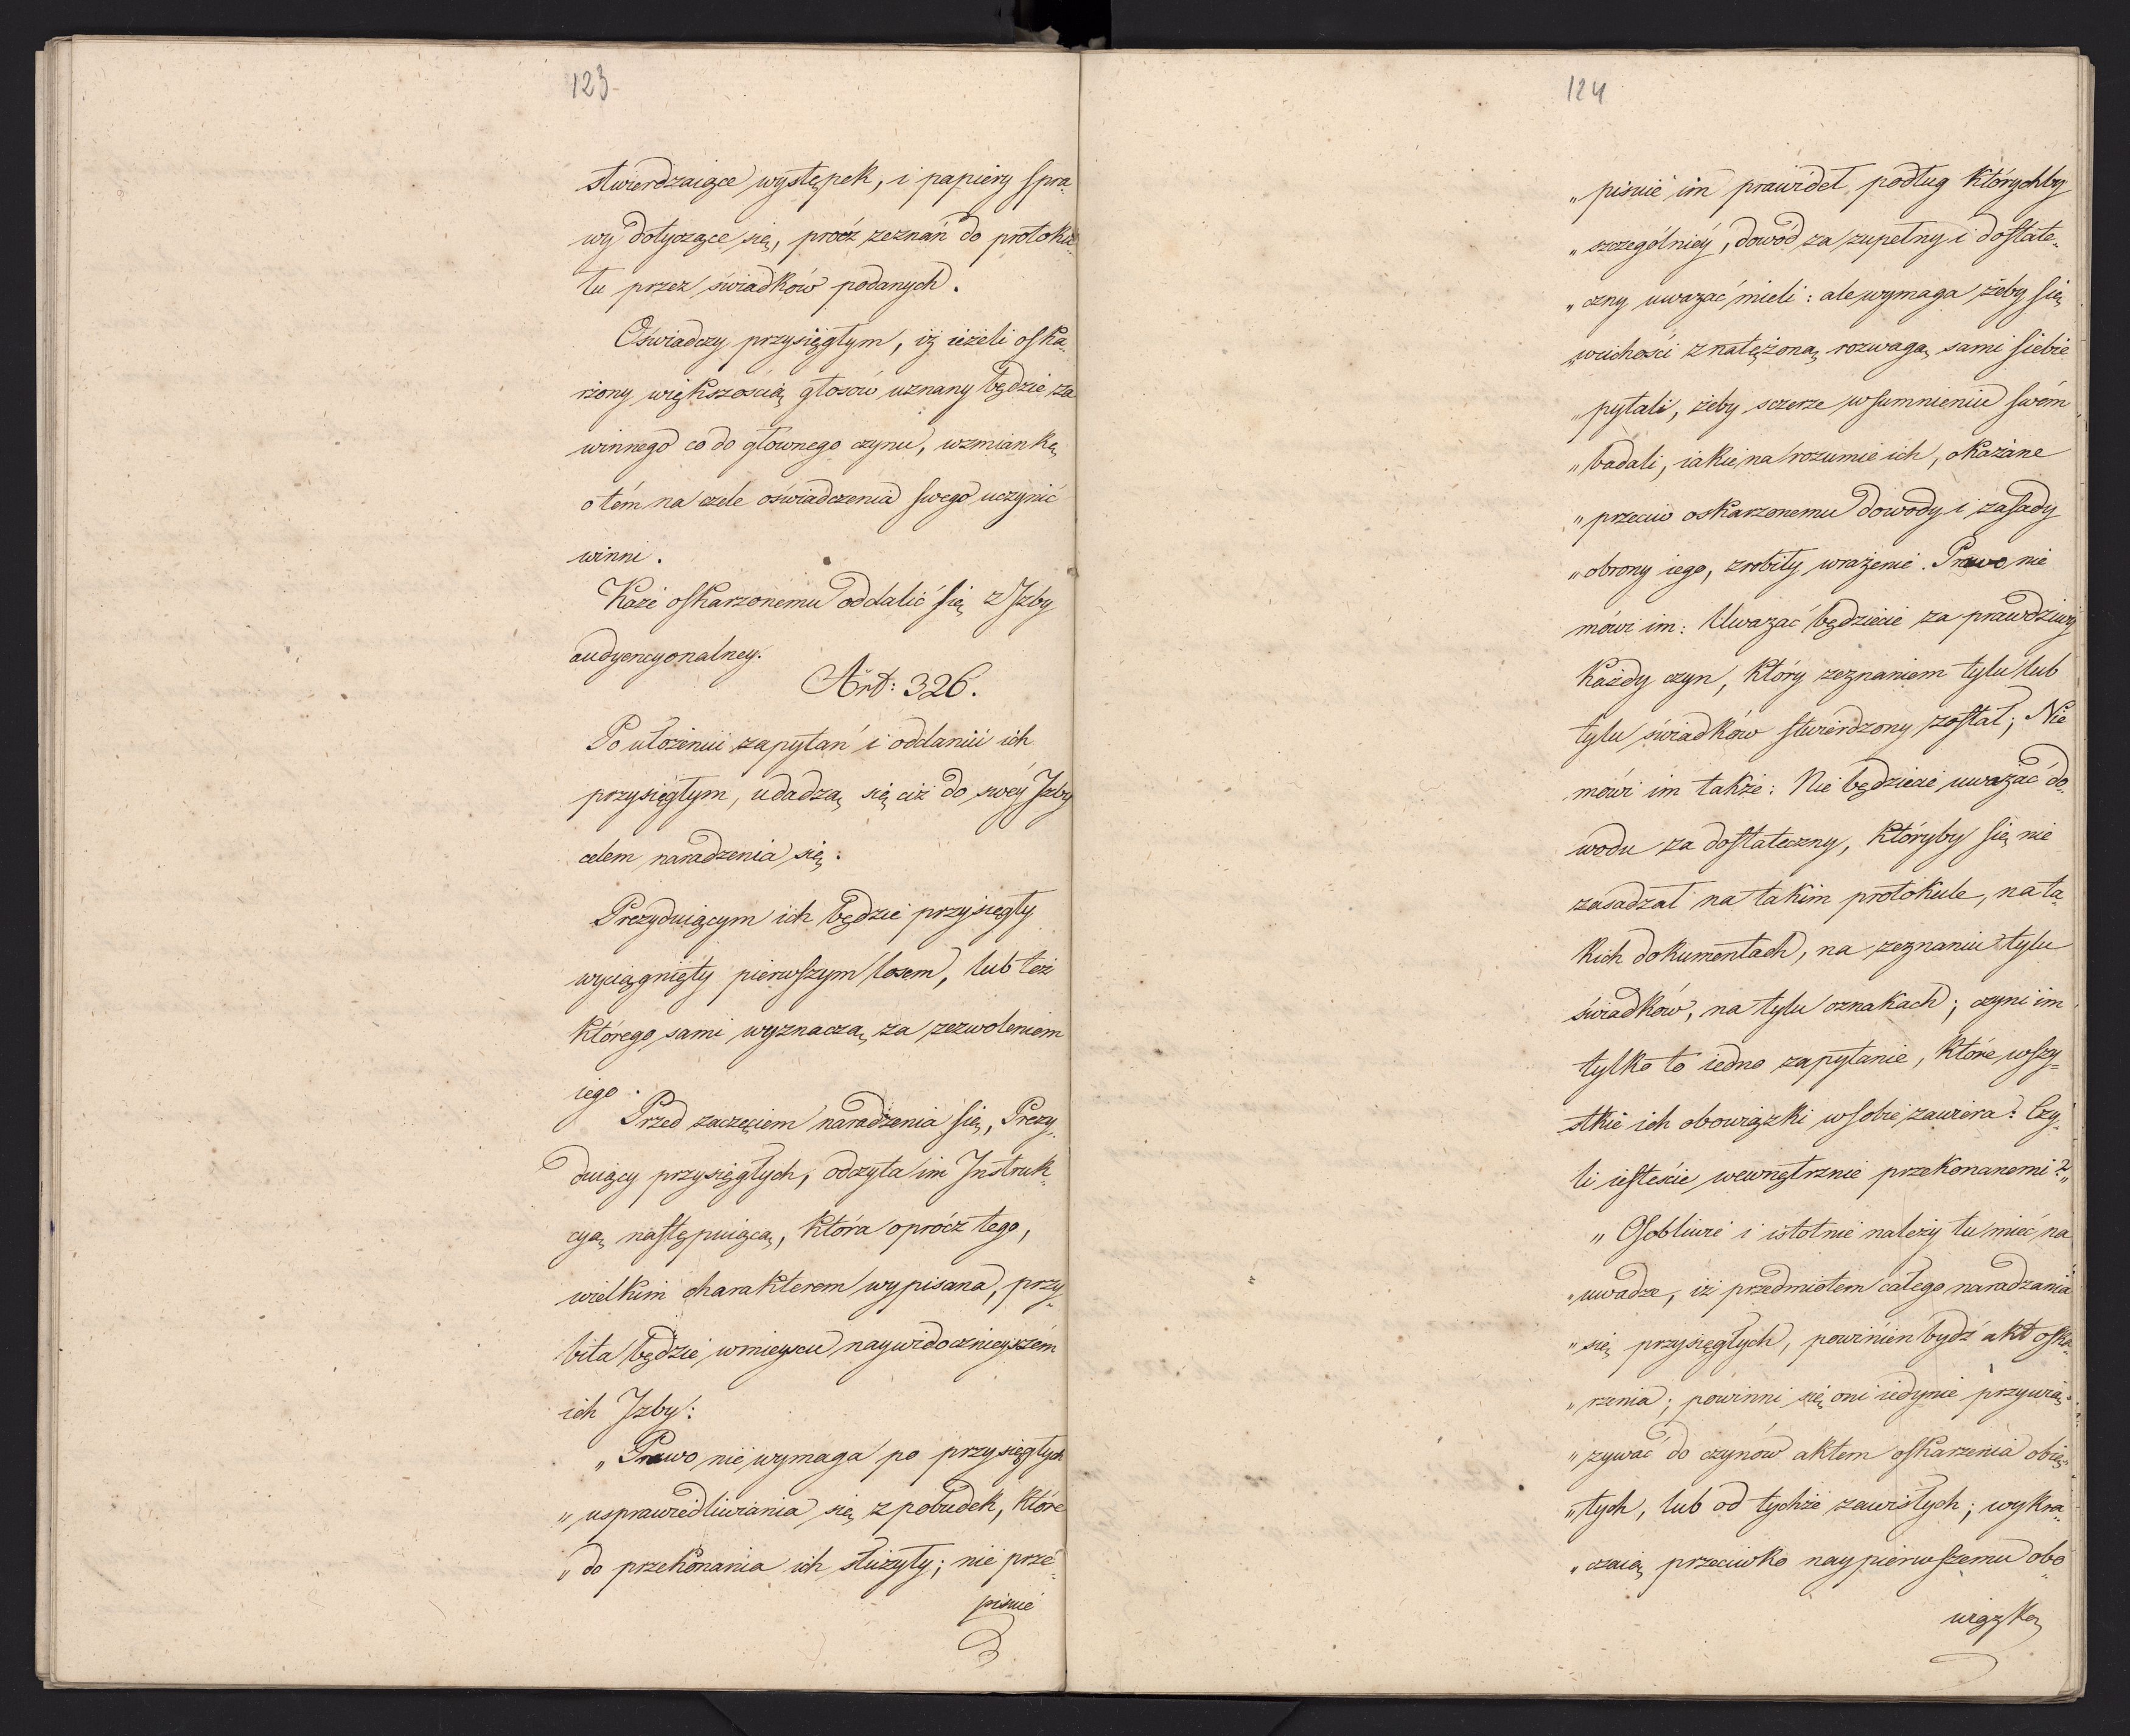 123
stwierdzaiące występek, i papiery spra„
wy dotyczące się, prócz zeznań do protoku„
łu przez świadków podanych.
Oświadczy przysięgłym, iż ieżeli oska„
rżony większością głosów uznany będzie za
winnego co do głównego czynu, wzmiankę
o tém na czele oświadczenia swego uczynić
winni.
Każe oskarzonemu oddalić się z Izby
audyencyonalney.
Art: 326.
Po ułożeniu zapytań i oddaniu ich
przysięgłym, udadzą się ciż do swéy Izby
celem naradzenia się.
Prezyduiącym ich będzie przysięgły
wyciągnięty pierwszym losem, lub też
którego sami wyznaczą za zezwoleniem
iego.
Przed zaczęciem naradzenia się, Prezy„
duiący przysięgłych, odczyta im Instruk„
cyą następuiącą, która oprócz tego,
wielkim charakterem wypisana, przy„
bita będzie w mieyscu naywidocznieyszém
ich Izby:
„Prawo nie wymaga po przysięgłych
„usprawiedliwiania się z pobudek, które
„do przekonania ich służyły; nie prze„
pisuie
124
„pisuie im prawideł podług którychby
„szczególniéy, dowód za zupełny i dostate„
„czny uważać mieli: ale wymaga żeby się
„w cichości z natężoną rozwagą sami siebie
„pytali, żeby sczerze w sumnieniu swém
„badali, iakie na rozumie ich, okazane
„przeciw oskarzonemu dowody i zasady
„obrony iego, zrobiły wrażenie. Prawo nie
mówi im: Uważać będziecie za prawdziwy
każdy czyn, który zeznaniem tylu lub
tylu świadków stwierdzony został; Nie
mówi im także: Nie będziecie uważać do„
wodu za dostateczny, któryby się nie
zasadzał na takim protokule, na ta„
kich dokumentach, na zeznaniu tylu
świadków, na tylu oznakach; czyni im
tylko to iedno zapytanie, które wszy„
stkie ich obowiązki w sobie zawiera: Czy„
li iesteście wewnętrznie przekonanemi?„
„Osobliwie i istotnie należy tu mieć na
„uwadze, iż przedmiotem całego naradzania
„się przysięgłych, powinien bydź akt oska„
„rzenia; powinni się oni iedynie przywią„
„zywać do czynów aktem oskarzenia obię„
„tych, lub od tychże zawisłych; wykra„
„czaią przeciwko naypierwszemu obo„
wiązko„